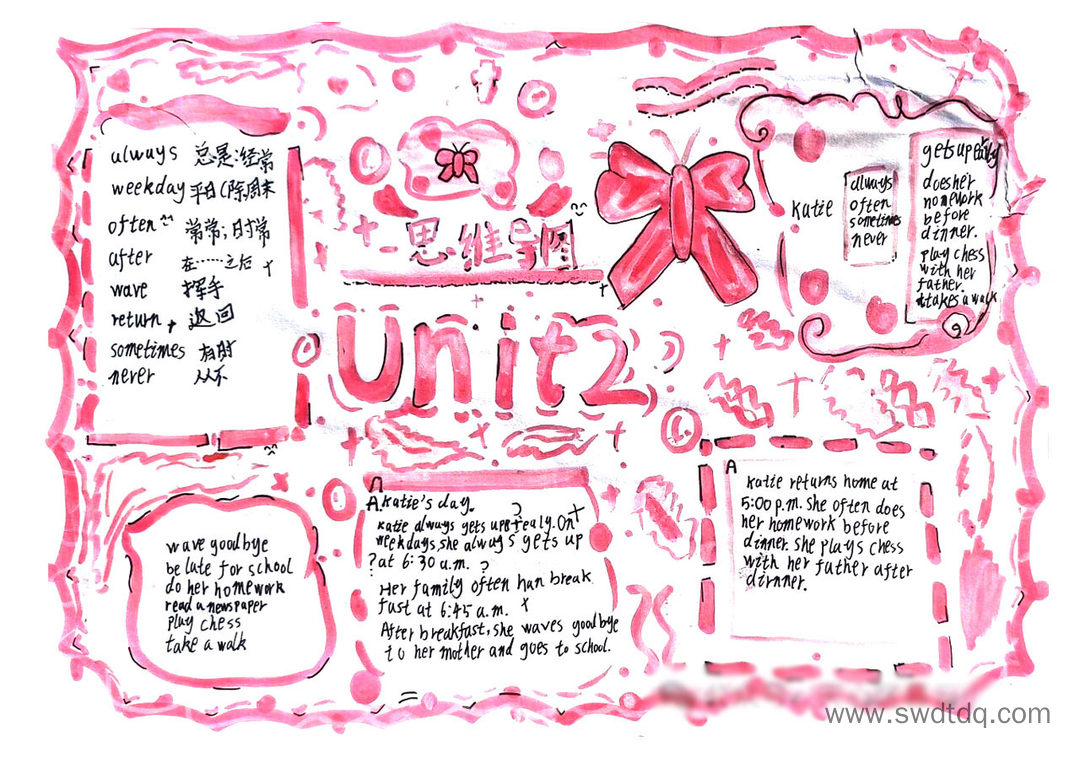 always 总是;经常
weekday 平日(除周末
often 常常;时常
after 在……之后
wave 挥手
return 返回
sometimes 有时
never 从不
思维导图
Unit2
Katie
always
often
sometimes
never
gets up early
does her
homework
before
dinner.
play chess
with her
father.
takes a walk
wave goodbye
be late for school
do her homework
read a newspaper
play chess
take a walk
A Katie's day.
Katie always gets up ealy. On
weekdays, she always gets up
? at 6:30 a.m. ?
Her family often han break
fast at 6:45 a.m.
After breakfast, she waves goodbye
to her mother and goes to school.
A
Katie returns home at
5:00 p.m. She often does
her homework before
dinner. She plays chess
with her father after
dinner.
www.swdtdq.com